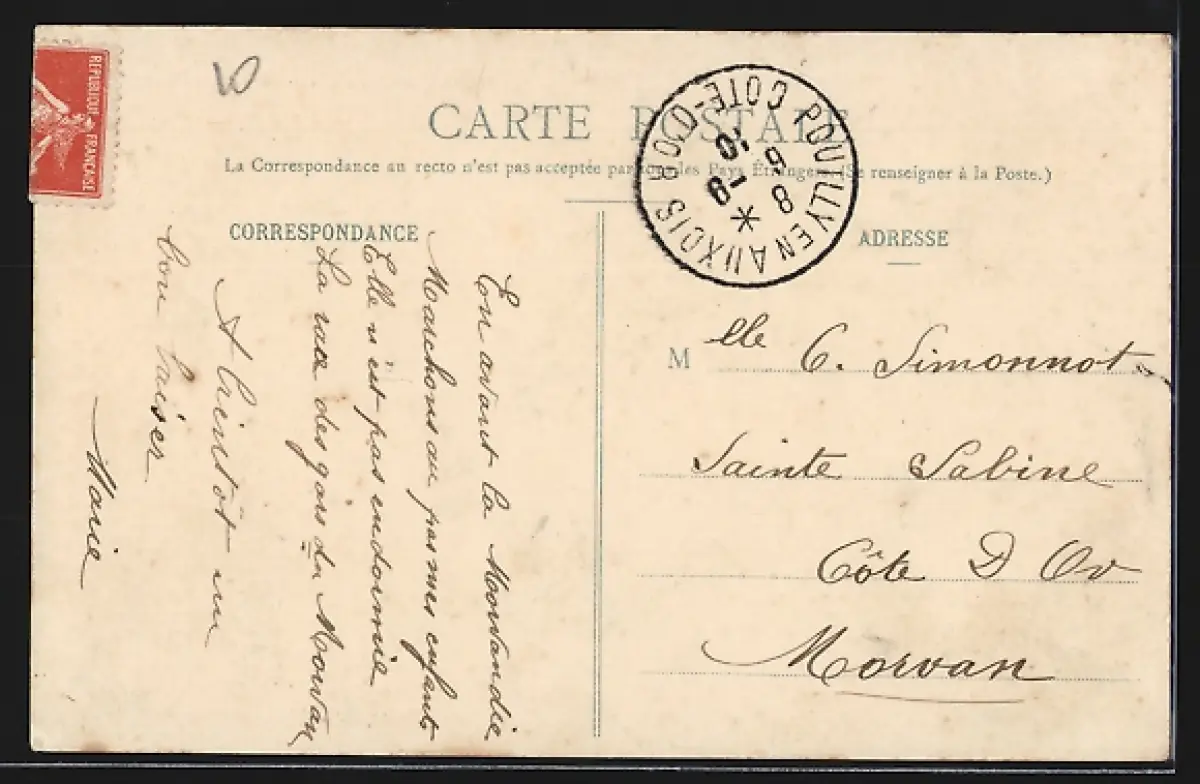 REPUBLIQUE FRANÇAISE
CARTE POSTALE
La Correspondance au recto n'est pas acceptée par tous les Pays Étrangers. (Se renseigner à la Poste.)
POUILLY EN AUXOIS COTE-D'OR
CORRESPONDANCE
En avant la Morvandie
Marchons au pas mes enfants
Elle n'est pas endormie
La race des gars du Morvan
A bientôt un
bon baiser
Marie
ADRESSE
Melle C. Simonnot
Sainte Sabine
Côte D Or
Morvan